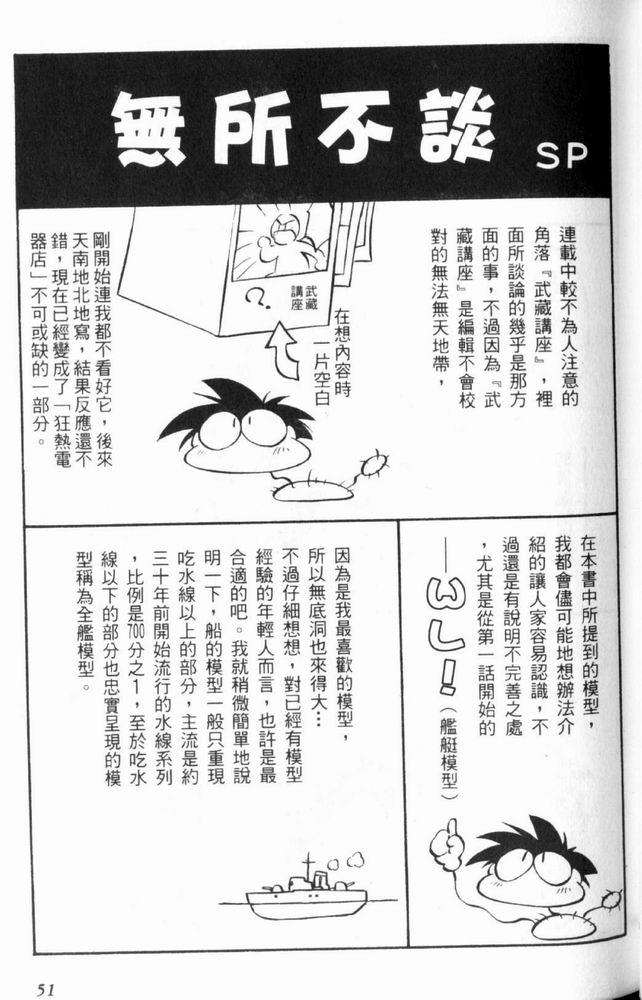 無所不談 SP
連載中較不為人注意的
角落『武藏講座』，裡
面所談論的幾乎是那方
面的事，不過因為『武
藏講座』是編輯不會校
對的無法無天地帶，
武藏
講座
？
在想內容時
一片空白
剛開始連我都不看好它，後來
天南地北地寫，結果反應還不
錯，現在已經變成了「狂熱電
器店」不可或缺的一部分。
在本書中所提到的模型，
我都會儘可能地想辦法介
紹的讓人家容易認識，不
過還是有說明不完善之處
，尤其是從第一話開始的
—WL！（艦艇模型）
因為是我最喜歡的模型，
所以無底洞也來得大…
不過仔細想想，對已經有模型
經驗的年輕人而言，也許是最
合適的吧。我就稍微簡單地說
明一下，船的模型一般只重現
吃水線以上的部分，主流是約
三十年前開始流行的水線系列
，比例是700分之1，至於吃水
線以下的部分也忠實呈現的模
型稱為全艦模型。
51